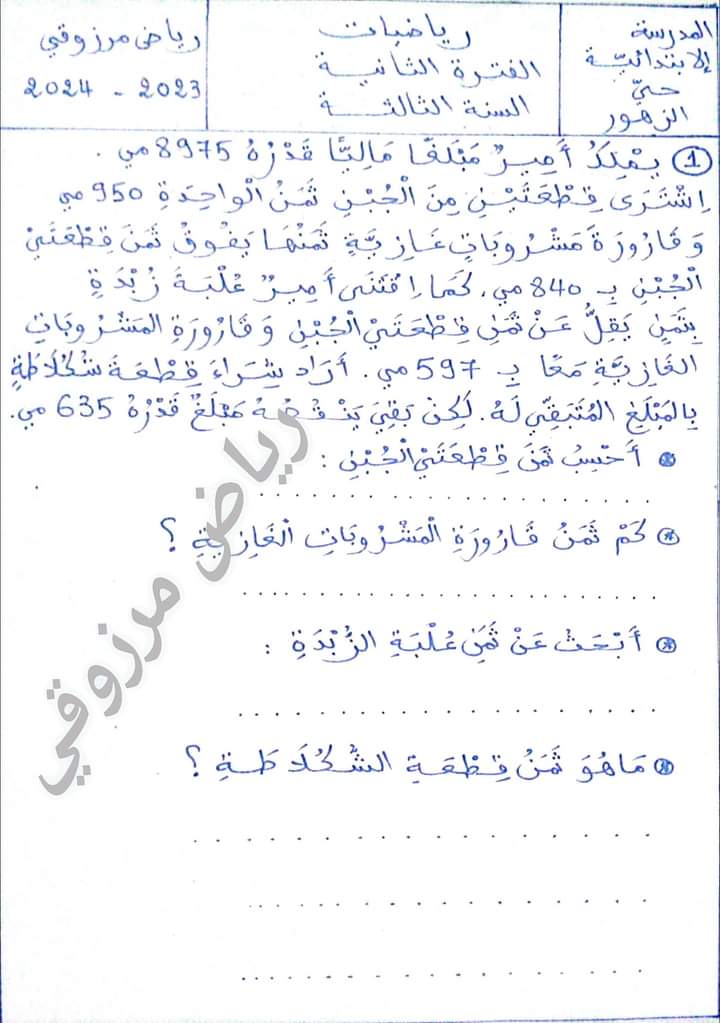 المدرسة
الابتدائيّة
حيّ
الزهور
رياضيات
الفترة الثانية
السنة الثالثة
رياض مرزوقي
2023 - 2024
1 يَمْلِكُ أَمِيرٌ مَبْلَغًا مَالِيًّا قَدْرُهُ 8975 مي .
اِشْتَرَى قِطْعَتَيْنِ مِنَ الْجُبْنِ ثَمَنُ الْواحِدَةِ 950 مي
وَ قَارُورَةَ مَشْرُوبَاتٍ غَازِيَّةٍ ثَمَنُهَا يَفُوقُ ثَمَنَ قِطْعَتَيْ
الْجُبْنِ بِـ 840 مي. كَمَا اِقْتَنَى أَمِيرٌ عُلْبَةَ زُبْدَةٍ
بِثَمَنٍ يَقِلُّ عَنْ ثَمَنِ قِطْعَتَيْ الْجُبْنِ وَ قَارُورَةِ المَشْرُوبَاتِ
الغَازِيَّةِ مَعًا بِـ 597 مي. أَرَادَ شِرَاءَ قِطْعَةَ شُكُلَاطَةٍ
بِالمَبْلَغِ المُتَبَقِّي لَهُ. لَكِنْ بَقِيَ يَنْقُصُهُ مَبْلَغٌ قَدْرُهُ 635 مي.
أَحْسِبُ ثَمَنَ قِطْعَتَيْ الْجُبْنِ :
كَمْ ثَمَنُ قَارُورَةِ الْمَشْرُوبَاتِ الْغَازِيَّةِ ؟
أَبْحَثُ عَنْ ثَمَنِ عُلْبَةِ الزُّبْدَةِ :
مَا هُوَ ثَمَنُ قِطْعَةِ الشُّكُلَاطَةِ ؟
رياض مرزوقي